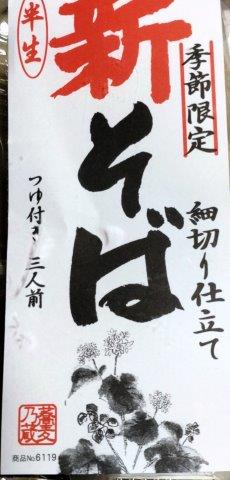 半生
新そば
季節限定
細切り仕立て
つゆ付き 三人前
蕎麦乃蔵
商品No6119